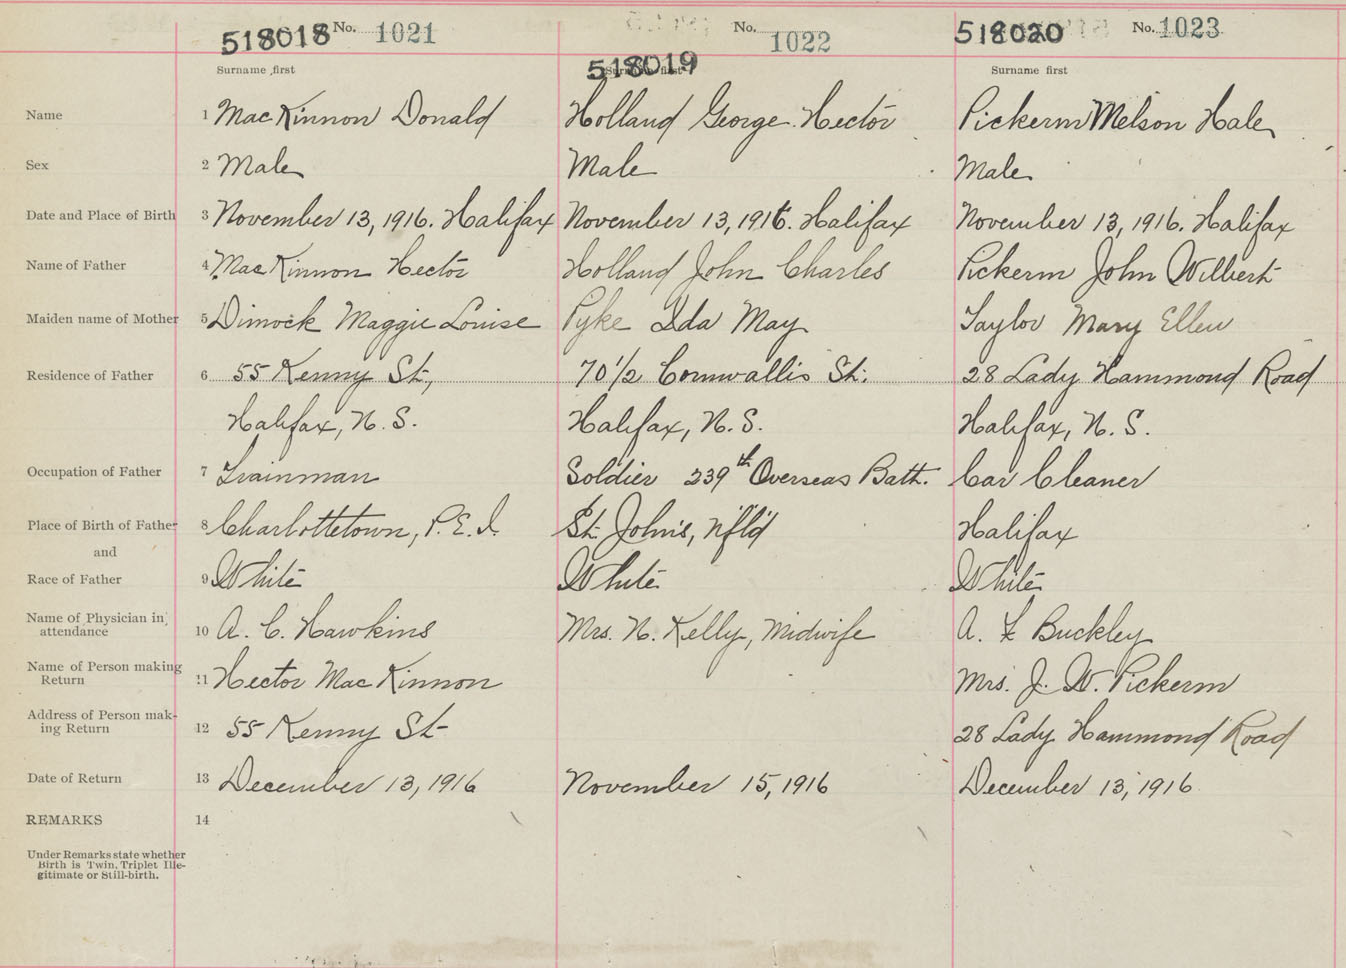 518018 No. 1021 No. 1022 518020 No. 1023
518019
Surname first Surname first Surname first
Name 1 MacKinnon Donald Holland George Hector Pickerm Melson Hale
Sex 2 Male Male Male
Date and Place of Birth 3 November 13, 1916. Halifax November 13, 1916. Halifax November 13, 1916. Halifax
Name of Father 4 MacKinnon Hector Holland John Charles Pickerm John Wilbert
Maiden name of Mother 5 Dimock Maggie Louise Pyke Ida May Taylor Mary Ellen
Residence of Father 6 55 Kenny St., 70 1/2 Cornwallis St. 28 Lady Hammond Road
Halifax, N. S. Halifax, N. S. Halifax, N. S.
Occupation of Father 7 Trainman Soldier 239th Overseas Batt. Car Cleaner
Place of Birth of Father 8 Charlottetown, P. E. I. St. John's, Nf'l'd Halifax
and
Race of Father 9 White White White
Name of Physician in
attendance 10 A. C. Hawkins Mrs. N. Kelly, Midwife A. F Buckley
Name of Person making
Return 11 Hector MacKinnon Mrs. J. W. Pickerm
Address of Person mak-
ing Return 12 55 Kenny St 28 Lady Hammond Road
Date of Return 13 December 13, 1916 November 15, 1916 December 13, 1916
REMARKS 14
Under Remarks state whether
Birth is Twin, Triplet Ille-
gitimate or Still-birth.